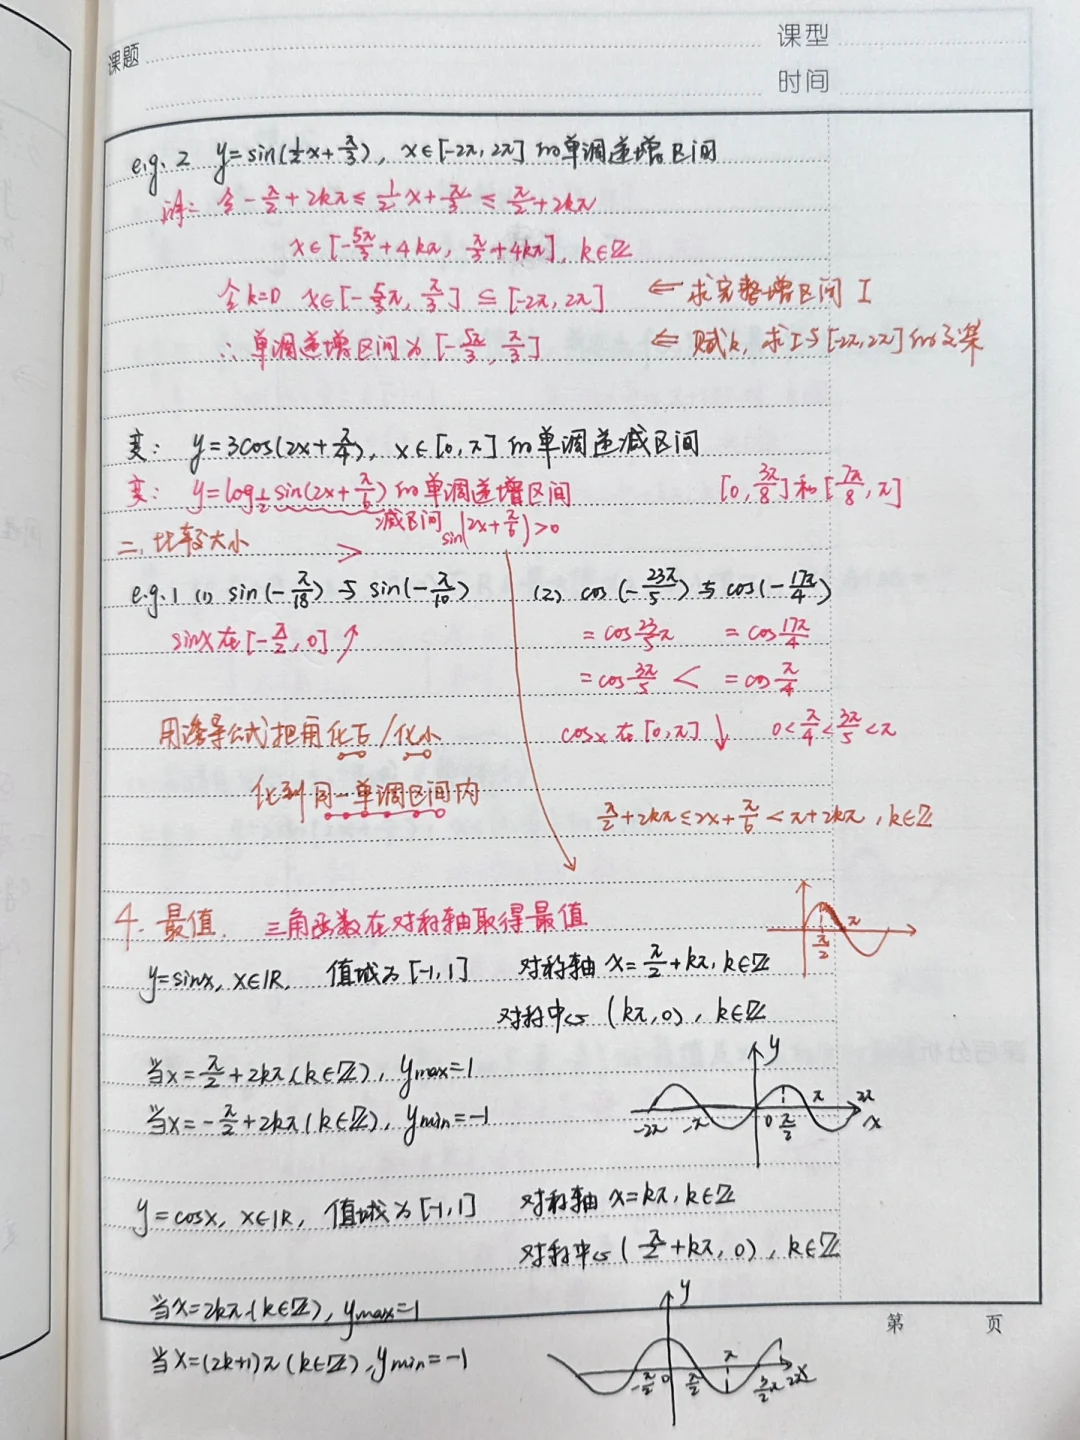 课题
课型
时间
e.g. 2 y=sin(½x+π/3), x∈[-2π, 2π] 的单调递增区间
解: 令 -π/2+2kπ ≤ ½x+π/3 ≤ π/2+2kπ
x∈[-5π/3+4kπ, π/3+4kπ], k∈ℤ
令k=0 x∈[-5/3π, π/3] ⊆ [-2π, 2π] ⇐ 求完整增区间 I
∴ 单调递增区间为 [-5π/3, π/3] ⇐ 赋k, 求I与[-2π,2π]的交集
变: y=3cos(2x+π/4), x∈[0, π] 的单调递减区间
变: y=log½ sin(2x+π/6) 的单调递增区间 [0, 3π/8] 和 [7π/8, π]
减区间 sin(2x+π/6)>0
二. 比较大小 >
e.g. 1 (1) sin(-π/18) 与 sin(-π/10) (2) cos(-23π/5) 与 cos(-17π/4)
sinx在[-π/2, 0]↗ =cos23/5π =cos17π/4
=cos3π/5 < =cosπ/4
用诱导公式把角化正/化小 cosx在[0,π]↓ 0<π/4<3π/5<π
化到同一单调区间内
π/2+2kπ≤2x+π/6<π+2kπ, k∈ℤ
4. 最值. 三角函数在对称轴取得最值
π/2 π
y=sinx, x∈ℝ, 值域为[-1,1] 对称轴 x=π/2+kπ, k∈ℤ
对称中心 (kπ,0), k∈ℤ
当x=π/2+2kπ(k∈ℤ), ymax=1
当x=-π/2+2kπ(k∈ℤ), ymin=-1
y
-2π -π 0 π/2 π 2π x
y=cosx, x∈ℝ, 值域为[-1,1] 对称轴 x=kπ, k∈ℤ
对称中心(π/2+kπ, 0), k∈ℤ
当x=2kπ(k∈ℤ), ymax=1
当x=(2k+1)π(k∈ℤ), ymin=-1
y
-π/2 0 π/2 π 3/2π 2π x
第 页